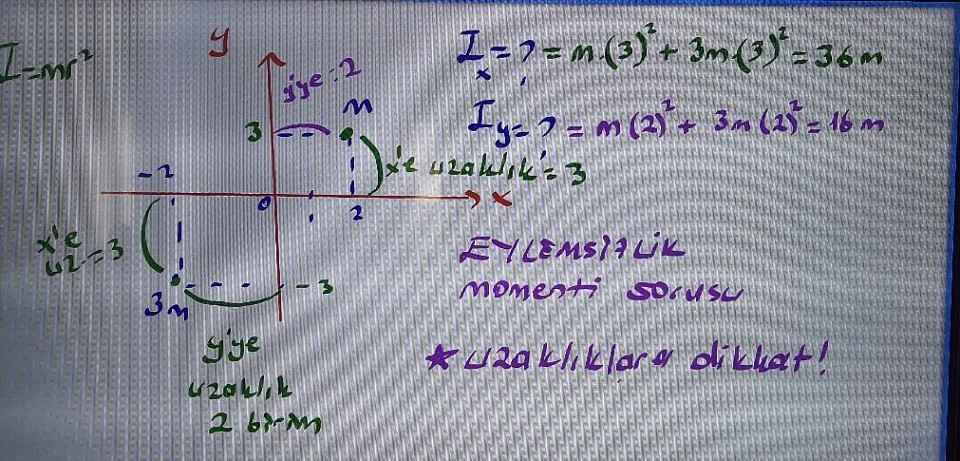 I=mr²
y
y'ye=2
m
3
x'e uzaklık=3
-2
0
2
x
x'e
uz=3
3m
-3
y'ye
uzaklık
2 birim
Ix=?=m.(3)²+3m.(3)²=36m
Iy=?=m(2)²+3m(2)²=16m
EYLEMSİZLİK
momenti sorusu
*uzaklıklara dikkat!